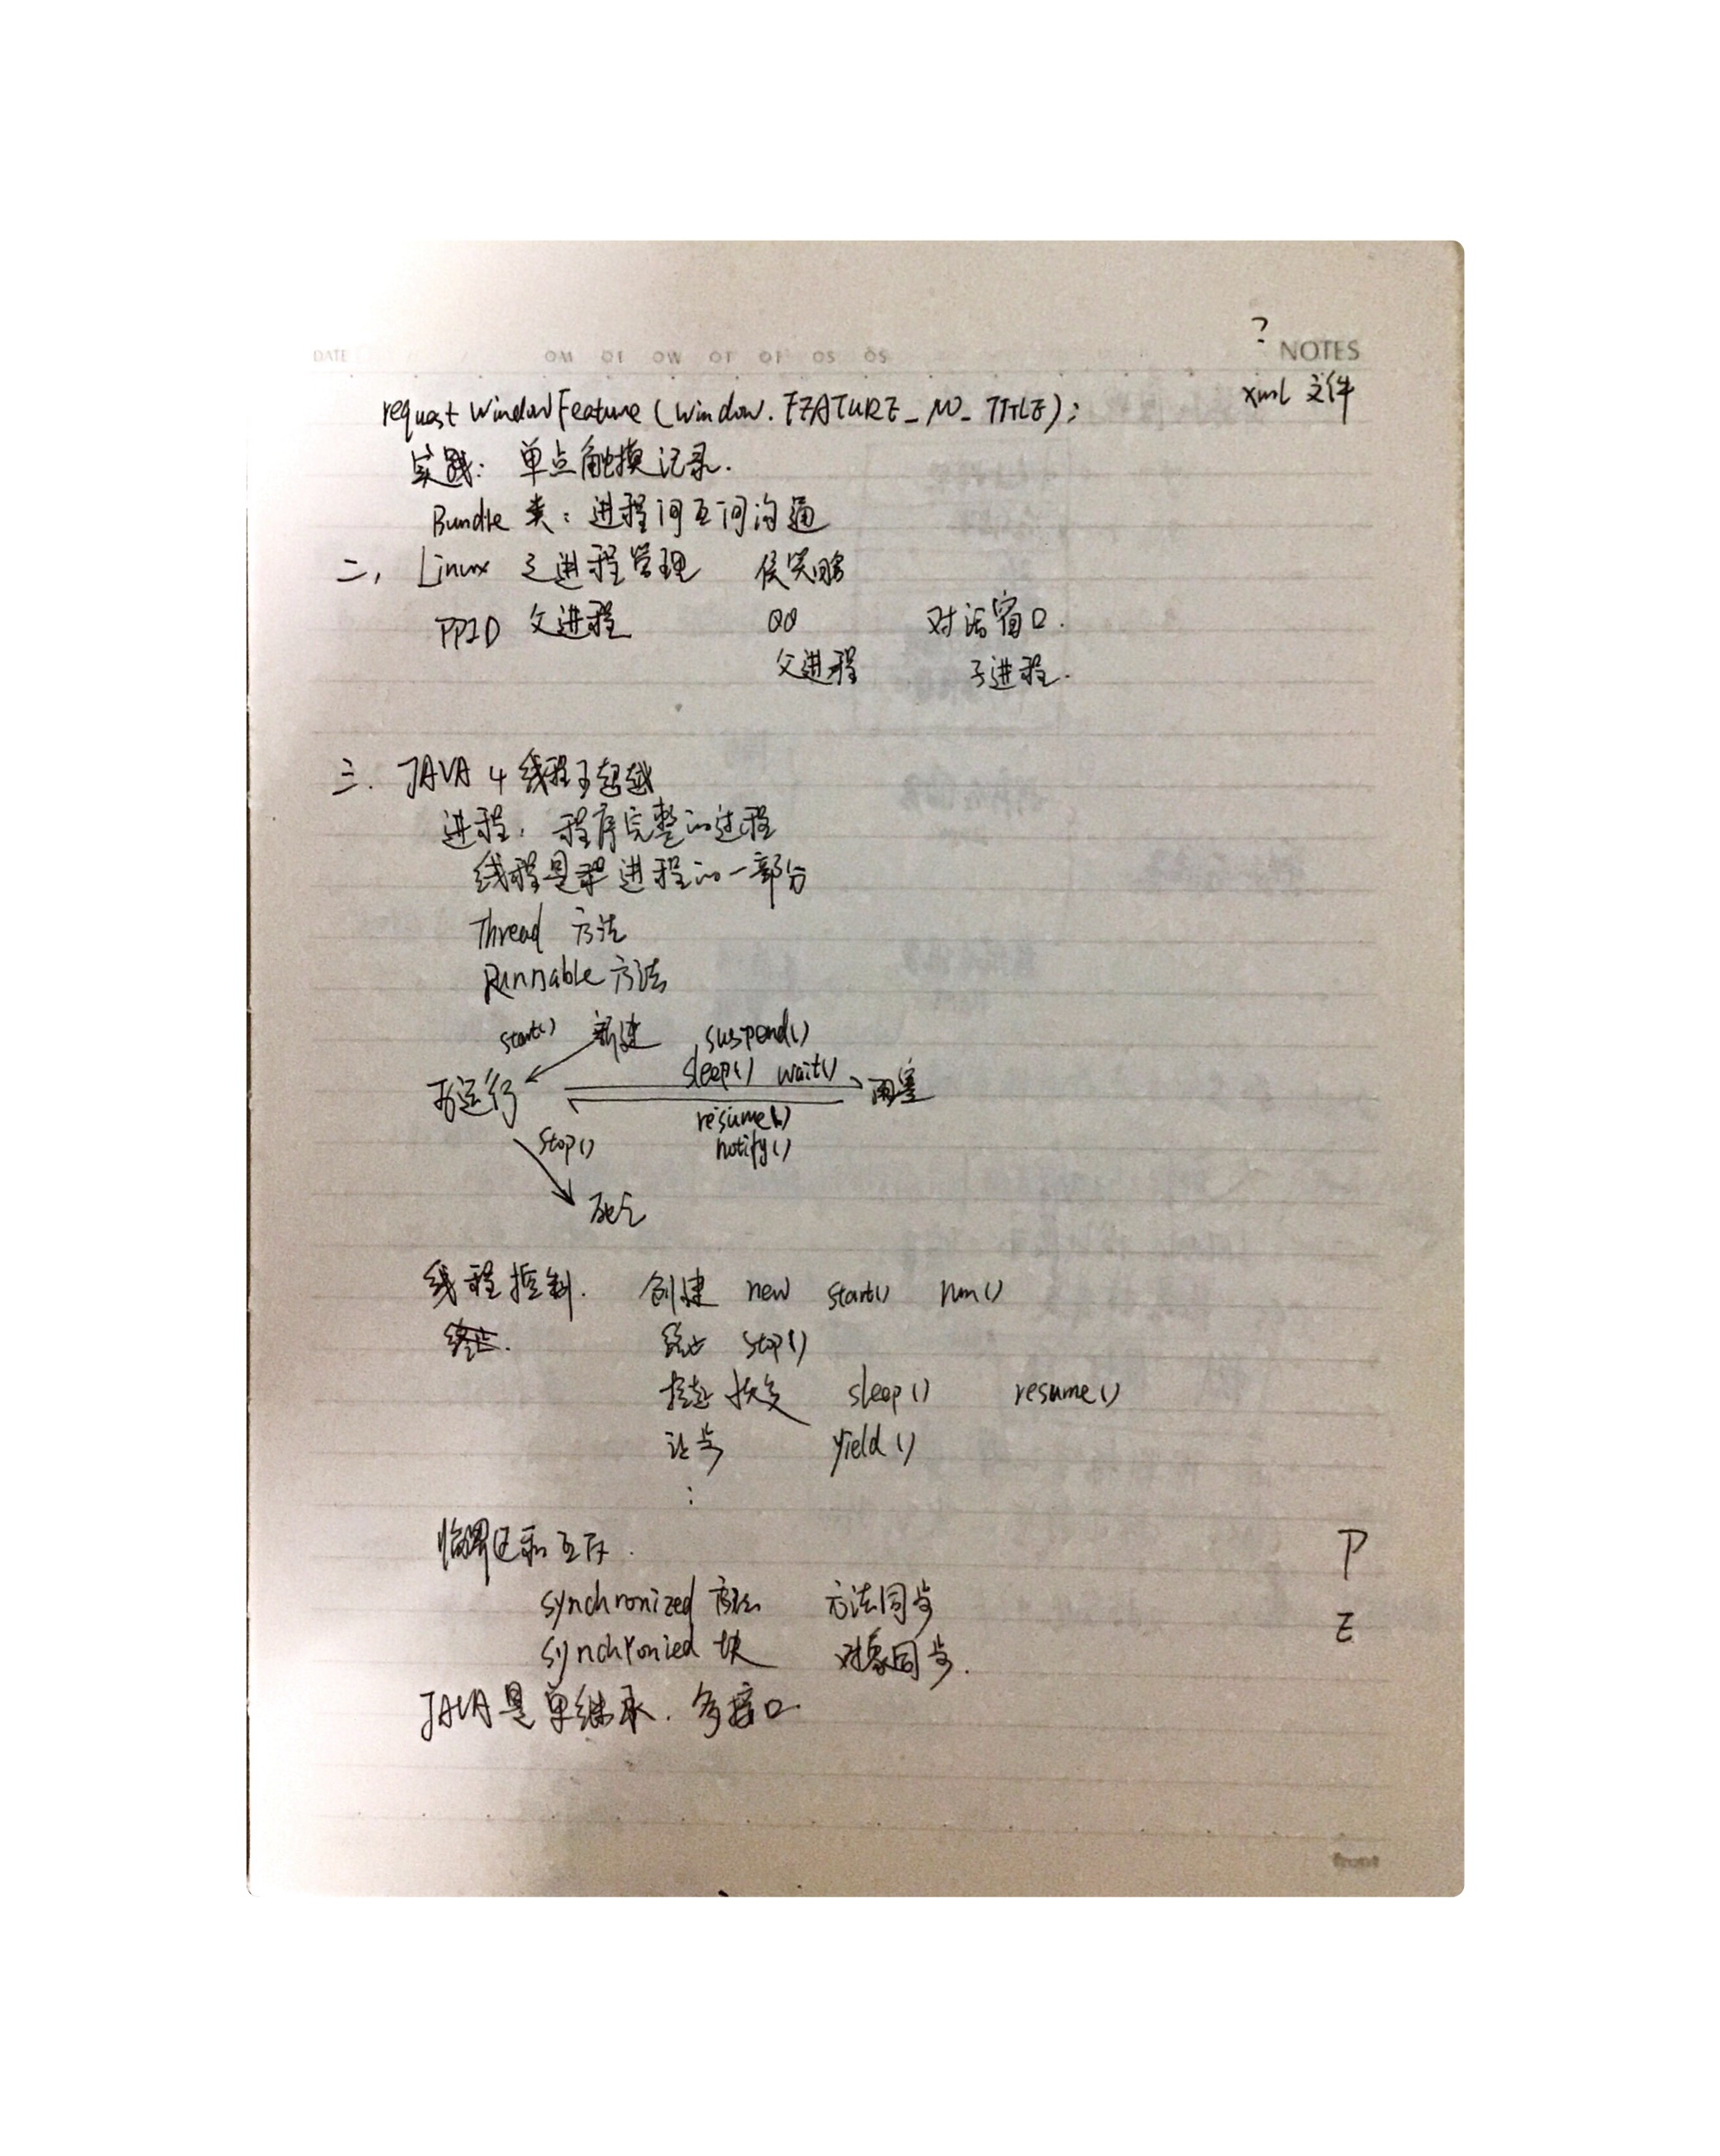 ?
DATE OM OT OW OT OF OS OS NOTES
xml 文件
requestWindowFeature(Window.FEATURE_NO_TITLE);
实践: 单点触摸记录.
Bundle 类: 进程间互间沟通
二, Linux 之进程管理 侯笑
PPID 父进程 QQ 对话窗口.
父进程 子进程.
三. JAVA 4 线程 王超越
进程, 程序完整的过程
线程是 进程的一部分
Thread 方法
Runnable 方法
start() 新建 suspend()
sleep() wait()
可运行
resume()
stop() notify()
死亡
线程控制. 创建 new start() run()
终止. 终止 stop()
挂起 恢复 sleep() resume()
让步 yield()
⋮
临界区和互斥.
P
synchronized 方法 方法同步
E
synchronied 块 对象同步.
JAVA是单继承. 多接口
front